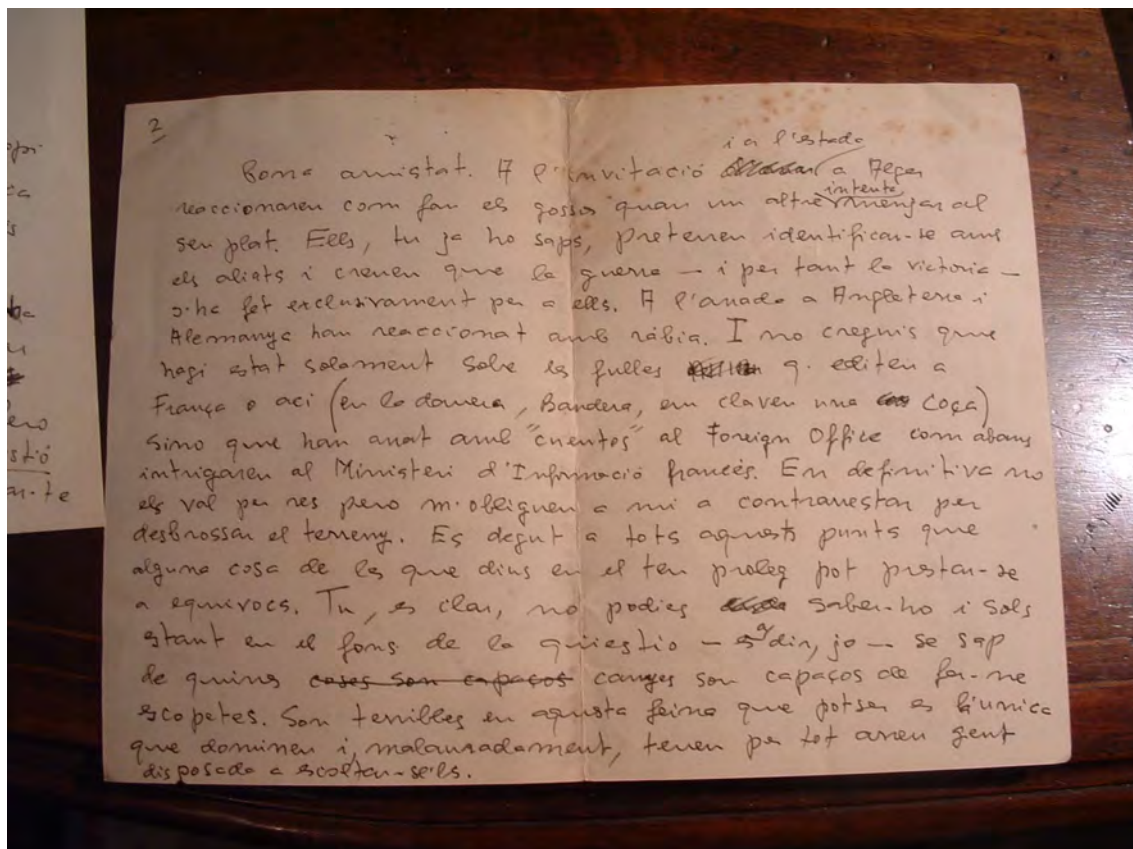 2
i a l'estada
Bona amistat. A l'invitació a Alger
intenta
reaccionaren com fan els gossos quan un altre menjar al
seu plat. Ells, tu ja ho saps, pretenen identificar-se amb
els aliats i creuen que la guerra — i per tant la victoria —
s·ha fet exclusivament per a ells. A l'anada a Angleterra i
Alemanya han reaccionat amb ràbia. I no creguis que
hagi estat solament sobre les fulles q. editen a
França o aci (en la darrera, Bandera, em claven una coça)
sino que han anat amb "cuentos" al Foreign Office com abans
intrigaren al Ministeri d'Informació francés. En definitiva no
els val per res pero m·obliguen a mi a contrarestar per
desbrossar el terreny. Es degut a tots aquests punts que
alguna cosa de les que dius en el teu proleg pot prestar-se
a equivocs. Tu, es clar, no podies saber-ho i sols
estant en el fons de la qüestio — es a dir, jo — se sap
de quines coses son capaços canyes son capaços de fer-ne
escopetes. Son terribles en aquesta feina que potser es l'unica
que dominen i, malauradament, tenen per tot arreu gent
disposada a escoltar-se'ls.
pero
stió
ar-te